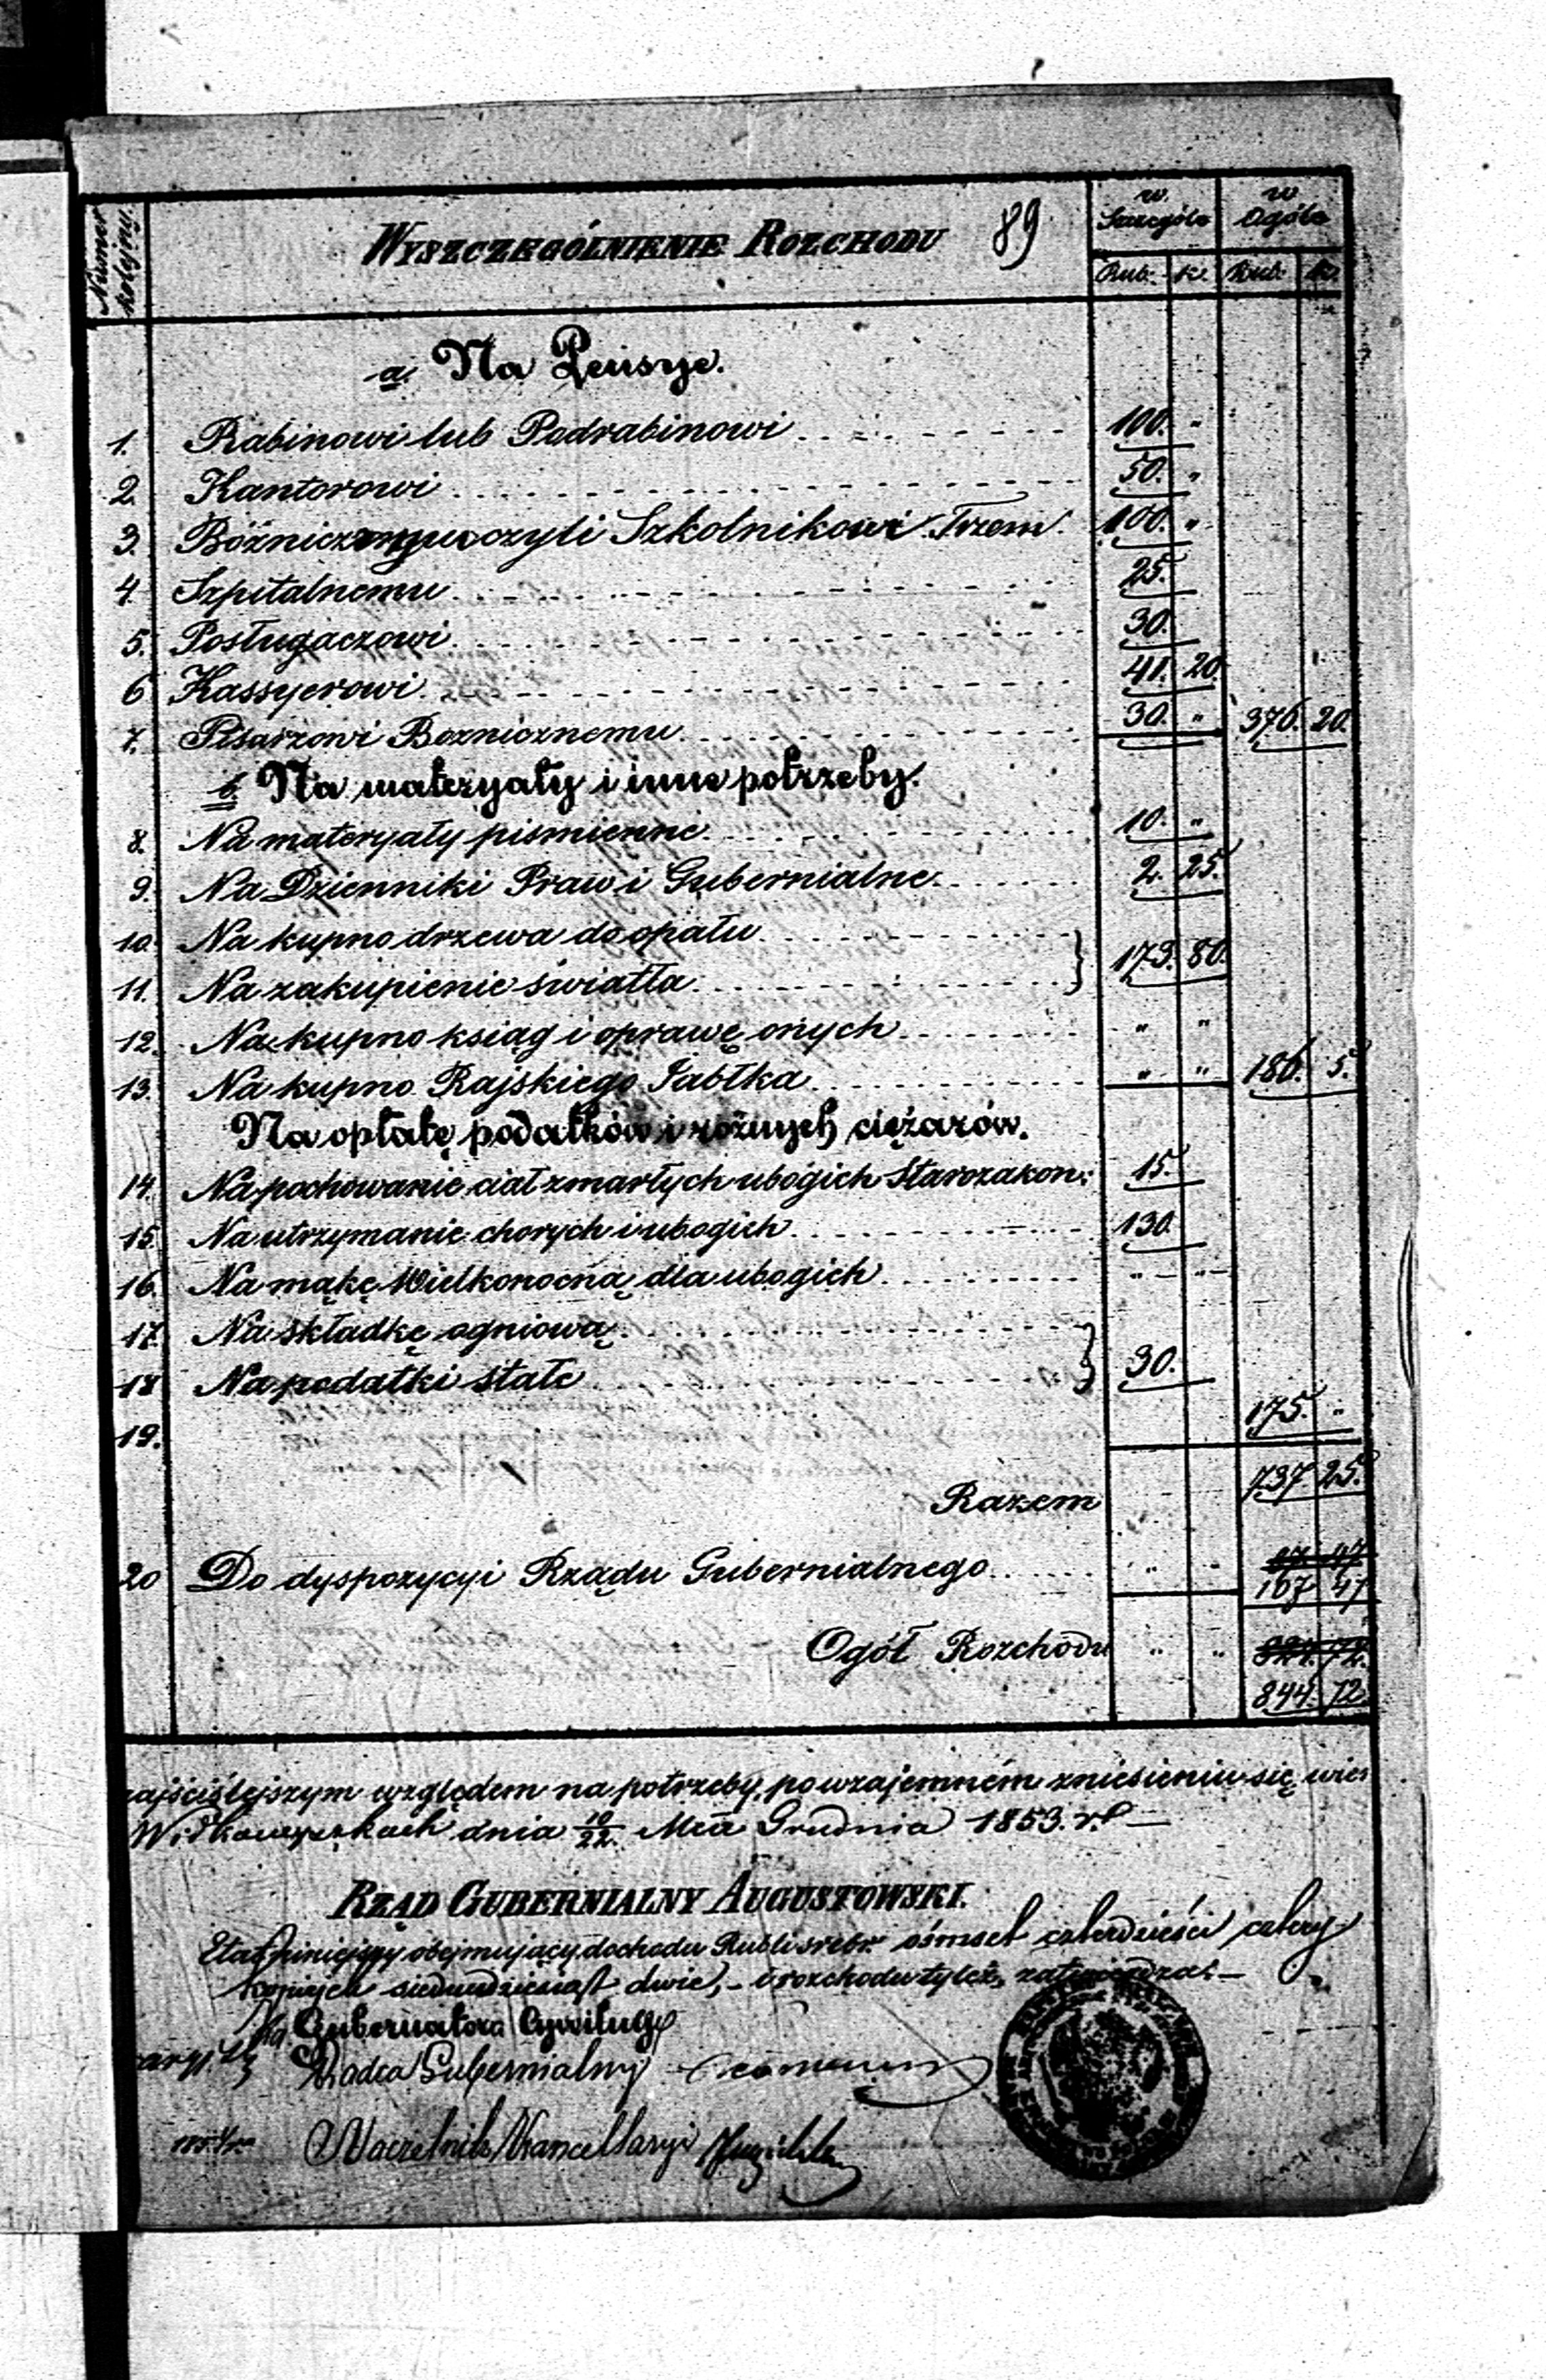 Numer kolejny.
WYSZCZEGÓLNIENIE ROZCHODU 89
w Szczególe
w Ogóle
Rub. k. Rub. k.
a. Na Pensye.
1. Rabinowi lub Podrabinowi 100. "
2. Kantorowi 50. "
3. Bóżnicznym czyli Szkolnikowi Trzem 100. "
4. Szpitalnemu 25.
5. Posługaczowi 30.
6 Kassyerowi 41. 20.
7. Pisarzowi Boznicznemu 30. " 376. 20.
b. Na materyały i inne potrzeby.
8. Na materyały pismienne 10. "
9. Na Dzienniki Praw i Gubernialne 2. 25.
10. Na kupno drzewa do opału
11. Na zakupienie światła } 173. 80.
12. Na kupno ksiąg i oprawę onych " "
13. Na kupno Rajskiego Jabłka " " 186. 5.
Na opłatę podatków i różnych ciężarów.
14. Na pochowanie ciał zmarłych ubogich Starozakon: 15.
15. Na utrzymanie chorych i ubogich 130.
16. Na mąkę Wielkonocną dla ubogich " - " -
17. Na składkę ogniową
18 Na podatki stałe } 30.
175. "
19.
Razem 737 25.
20 Do dyspozycyi Rządu Gubernialnego " " 87 47
107 47
Ogół Rozchodu " " 824. 72.
844. 72.
najściślejszym względem na potrzeby, po wzajemném zniesieniu się wier
Wiłkowyszkach dnia 10/22. Mca Grudnia 1853. r.
RZĄD GUBERNIALNY AUGUSTOWSKI.
Etat niniejszy obejmujący dochodu Rubli srebr. ośmset czterdzieści cztery
kopiejek siedmdziesiąt dwie, - i rozchodu tyleż, zatwierdza. -
Gubernatora Cywilnego
Radca Gubernialny
Naczelnik Kancellaryi